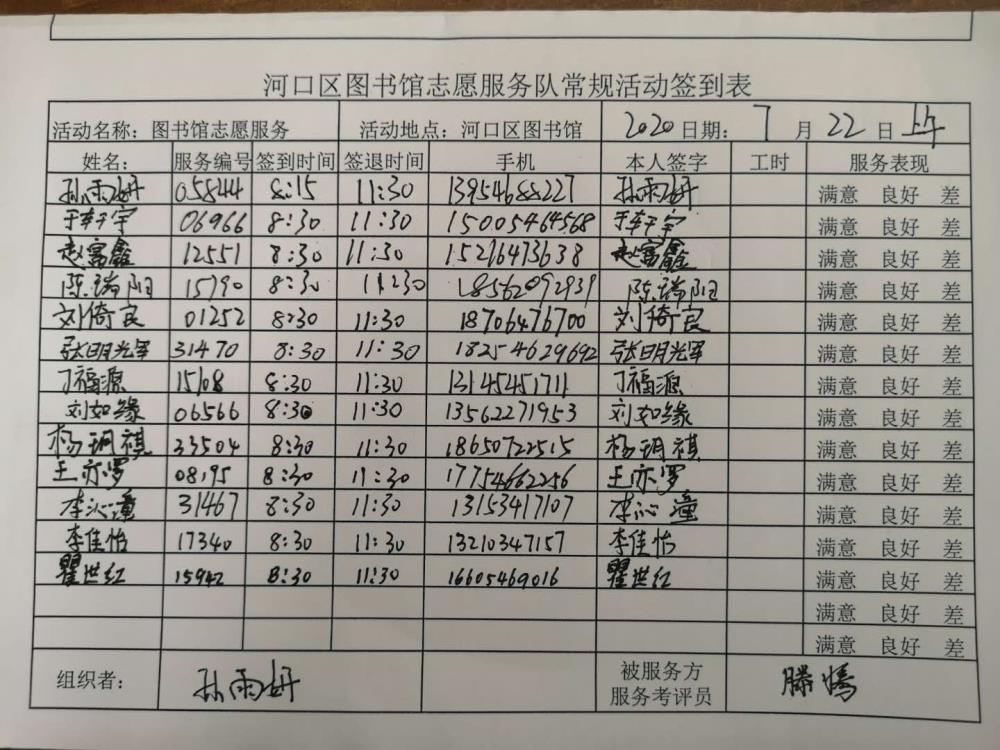 河口区图书馆志愿服务队常规活动签到表
活动名称：图书馆志愿服务 活动地点：河口区图书馆 2020日期： 7 月 22 日 上午
姓名： 服务编号 签到时间 签退时间 手机 本人签字 工时 服务表现
孙雨妍 058244 8:15 11:30 13954688227 孙雨妍 满意 良好 差
于轩宇 06966 8:30 11:30 15005464568 于轩宇 满意 良好 差
赵富鑫 12551 8:30 11:30 15216473638 赵富鑫 满意 良好 差
陈瑞阳 15790 8:30 11:30 18562092939 陈瑞阳 满意 良好 差
刘倚良 01252 8:30 11:30 18706476700 刘倚良 满意 良好 差
张明光军 31470 8:30 11:30 18254629692 张明光军 满意 良好 差
丁福源 15108 8:30 11:30 13145451711 丁福源 满意 良好 差
刘如缘 06566 8:30 11:30 13562271953 刘如缘 满意 良好 差
杨玥祺 33504 8:30 11:30 18650722515 杨玥祺 满意 良好 差
王亦罗 08195 8:30 11:30 17754662256 王亦罗 满意 良好 差
李沁潼 31467 8:30 11:30 13153417107 李沁潼 满意 良好 差
李佳怡 17340 8:30 11:30 13210347157 李佳怡 满意 良好 差
瞿世红 15942 8:30 11:30 16605469016 瞿世红 满意 良好 差
满意 良好 差
满意 良好 差
组织者： 孙雨妍 被服务方 滕嫣
服务考评员